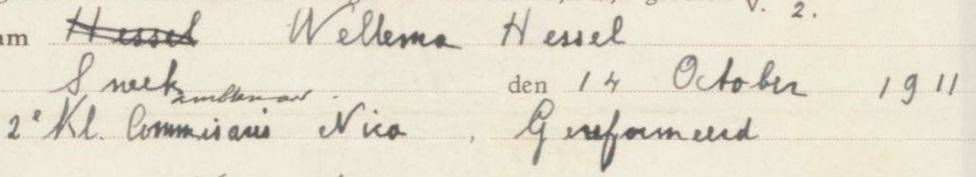 v. 2.
am Hessel Wellema Hessel
Sneek den 14 October 1911
ambtenaar
2e Kl. Commisaris Nica, Gereformeerd